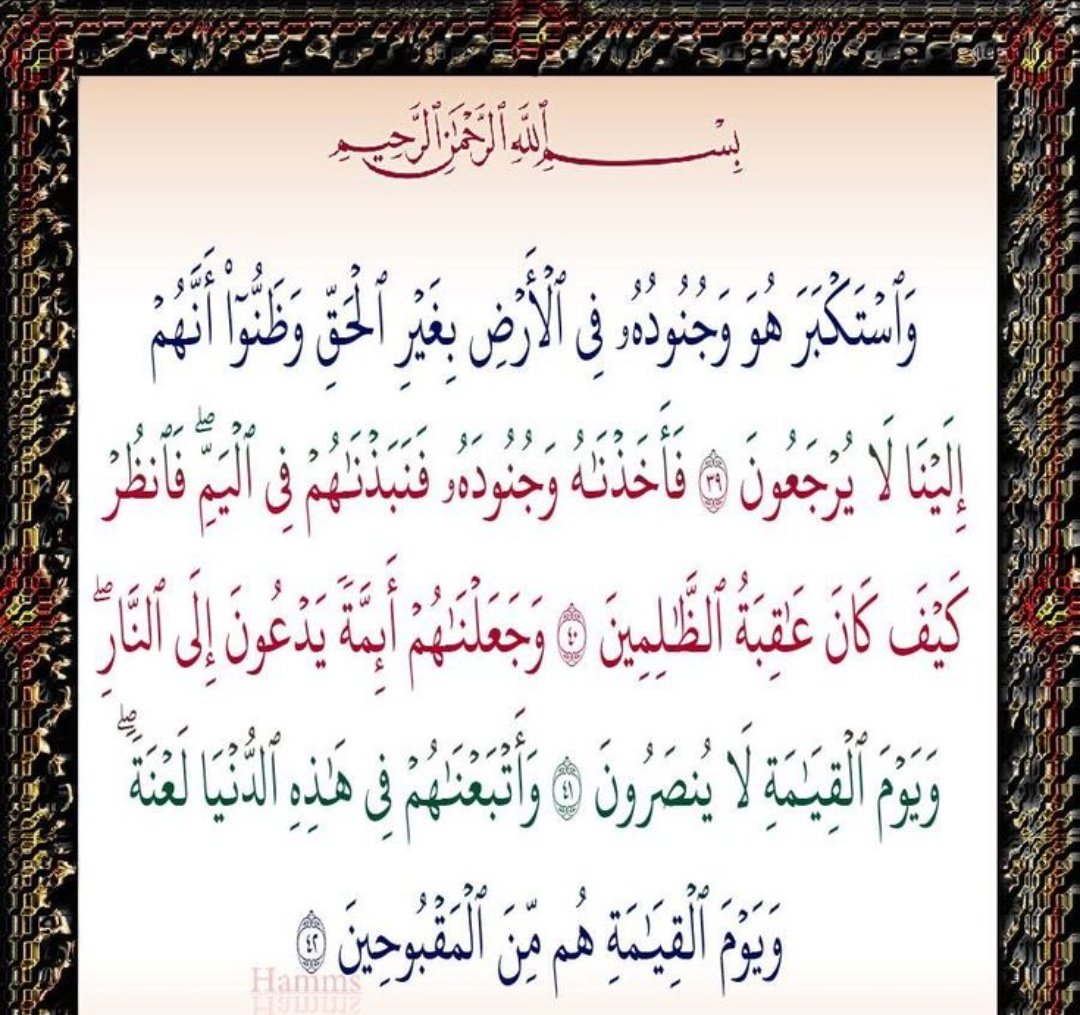 بِسْمِ ٱللَّهِ ٱلرَّحْمَٰنِ ٱلرَّحِيمِ
وَٱسْتَكْبَرَ هُوَ وَجُنُودُهُۥ فِى ٱلْأَرْضِ بِغَيْرِ ٱلْحَقِّ وَظَنُّوٓا۟ أَنَّهُمْ
إِلَيْنَا لَا يُرْجَعُونَ ٣٩ فَأَخَذْنَٰهُ وَجُنُودَهُۥ فَنَبَذْنَٰهُمْ فِى ٱلْيَمِّ ۖ فَٱنظُرْ
كَيْفَ كَانَ عَٰقِبَةُ ٱلظَّٰلِمِينَ ٤٠ وَجَعَلْنَٰهُمْ أَئِمَّةً يَدْعُونَ إِلَى ٱلنَّارِ ۖ
وَيَوْمَ ٱلْقِيَٰمَةِ لَا يُنصَرُونَ ٤١ وَأَتْبَعْنَٰهُمْ فِى هَٰذِهِ ٱلدُّنْيَا لَعْنَةً ۖ
وَيَوْمَ ٱلْقِيَٰمَةِ هُم مِّنَ ٱلْمَقْبُوحِينَ ٤٢
Hamms